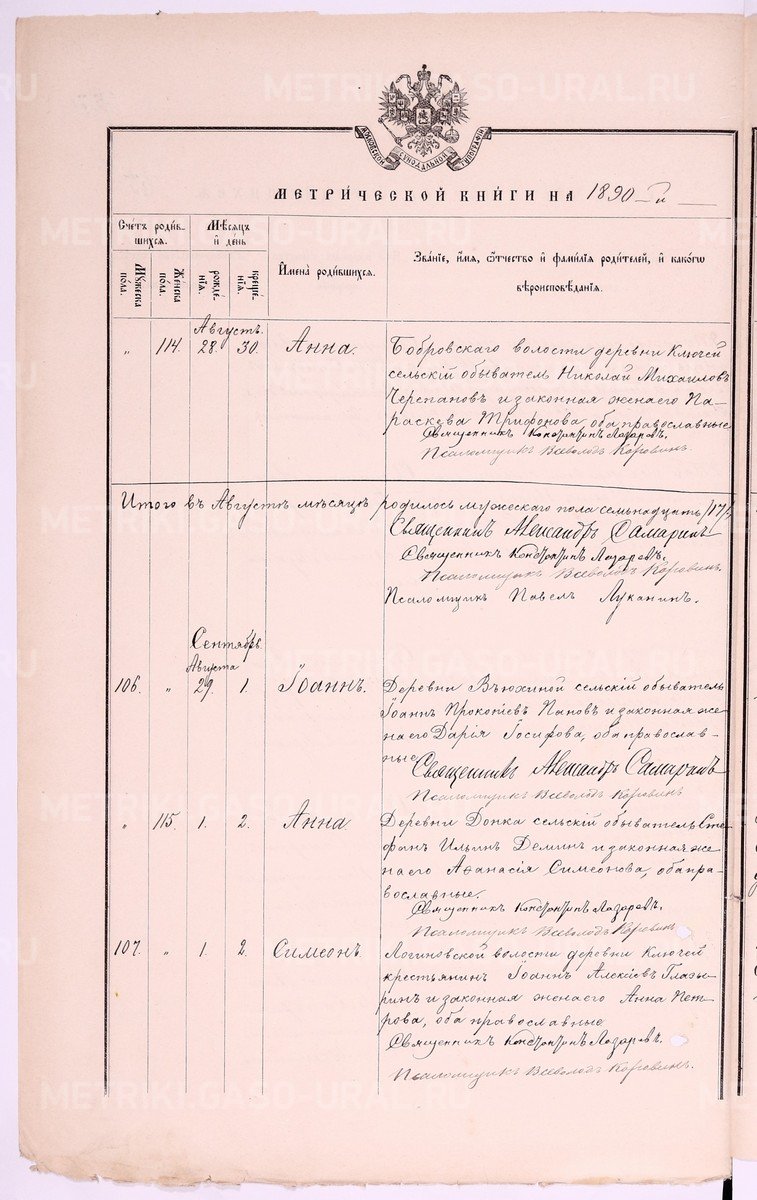 METRIKI.GASO-URAL.RU
МОСКОВСКОЙ СѴНОДАЛЬНОЙ ТИПОГРАФІИ
МЕТРИ́ЧЕСКОЙ КНИ́ГИ НА 1890 Г.
Сче́тъ роди́в-
шихсѧ.
Мѣ́сѧцъ
и҆ де́нь
И҆мена̀ роди́вшихсѧ.
Зва́нїе, и҆́мѧ, ѻ҆́тчество и҆ фами́лїѧ роди́телей, и҆ како́гѡ
вѣроисповѣ́данїѧ.
Мꙋ́жеска
по́ла.
Же́нска
по́ла.
рожде́-
нїѧ.
креще́-
нїѧ.
Августъ.
" 114. 28. 30. Анна. Бобровскаго волости деревни Ключей
сельскій обыватель Николай Михаиловъ
Черепановъ и законная жена его Па-
раскева Трифонова, оба православные
Священникъ Константинъ Лазаревъ.
Псаломщикъ Всеволодъ Коровинъ.
Итого въ Августѣ мѣсяцѣ родилось мужескаго пола семьнадцать /17/
Священникъ Александръ Самаринъ
Священникъ Константинъ Лазаревъ.
Псаломщикъ Всеволодъ Коровинъ.
Псаломщикъ Павелъ Луканинъ.
Сентябрь.
Августа
106. " 29. 1. Іоаннъ. Деревни Вьюхиной сельскій обыватель
Іоаннъ Прокопіевъ Пановъ и законная же-
на его Дарія Іосифова, оба православ-
ные
Священникъ Александръ Самаринъ
Псаломщикъ Всеволодъ Коровинъ
" 115. 1. 2. Анна Деревни Допка сельскій обыватель Сте-
фанъ Ильинъ Деминъ и законная же-
на его Аѳанасія Симеонова, оба пра-
вославные.
Священникъ Константинъ Лазаревъ.
Псаломщикъ Всеволодъ Коровинъ
107. " 1. 2. Симеонъ. Логиновской волости деревни Ключей
крестьянинъ Іоаннъ Алексѣевъ Глазы-
ринъ и законная жена его Анна Пет-
рова, оба православные
Священникъ Константинъ Лазаревъ.
Псаломщикъ Всеволодъ Коровинъ.